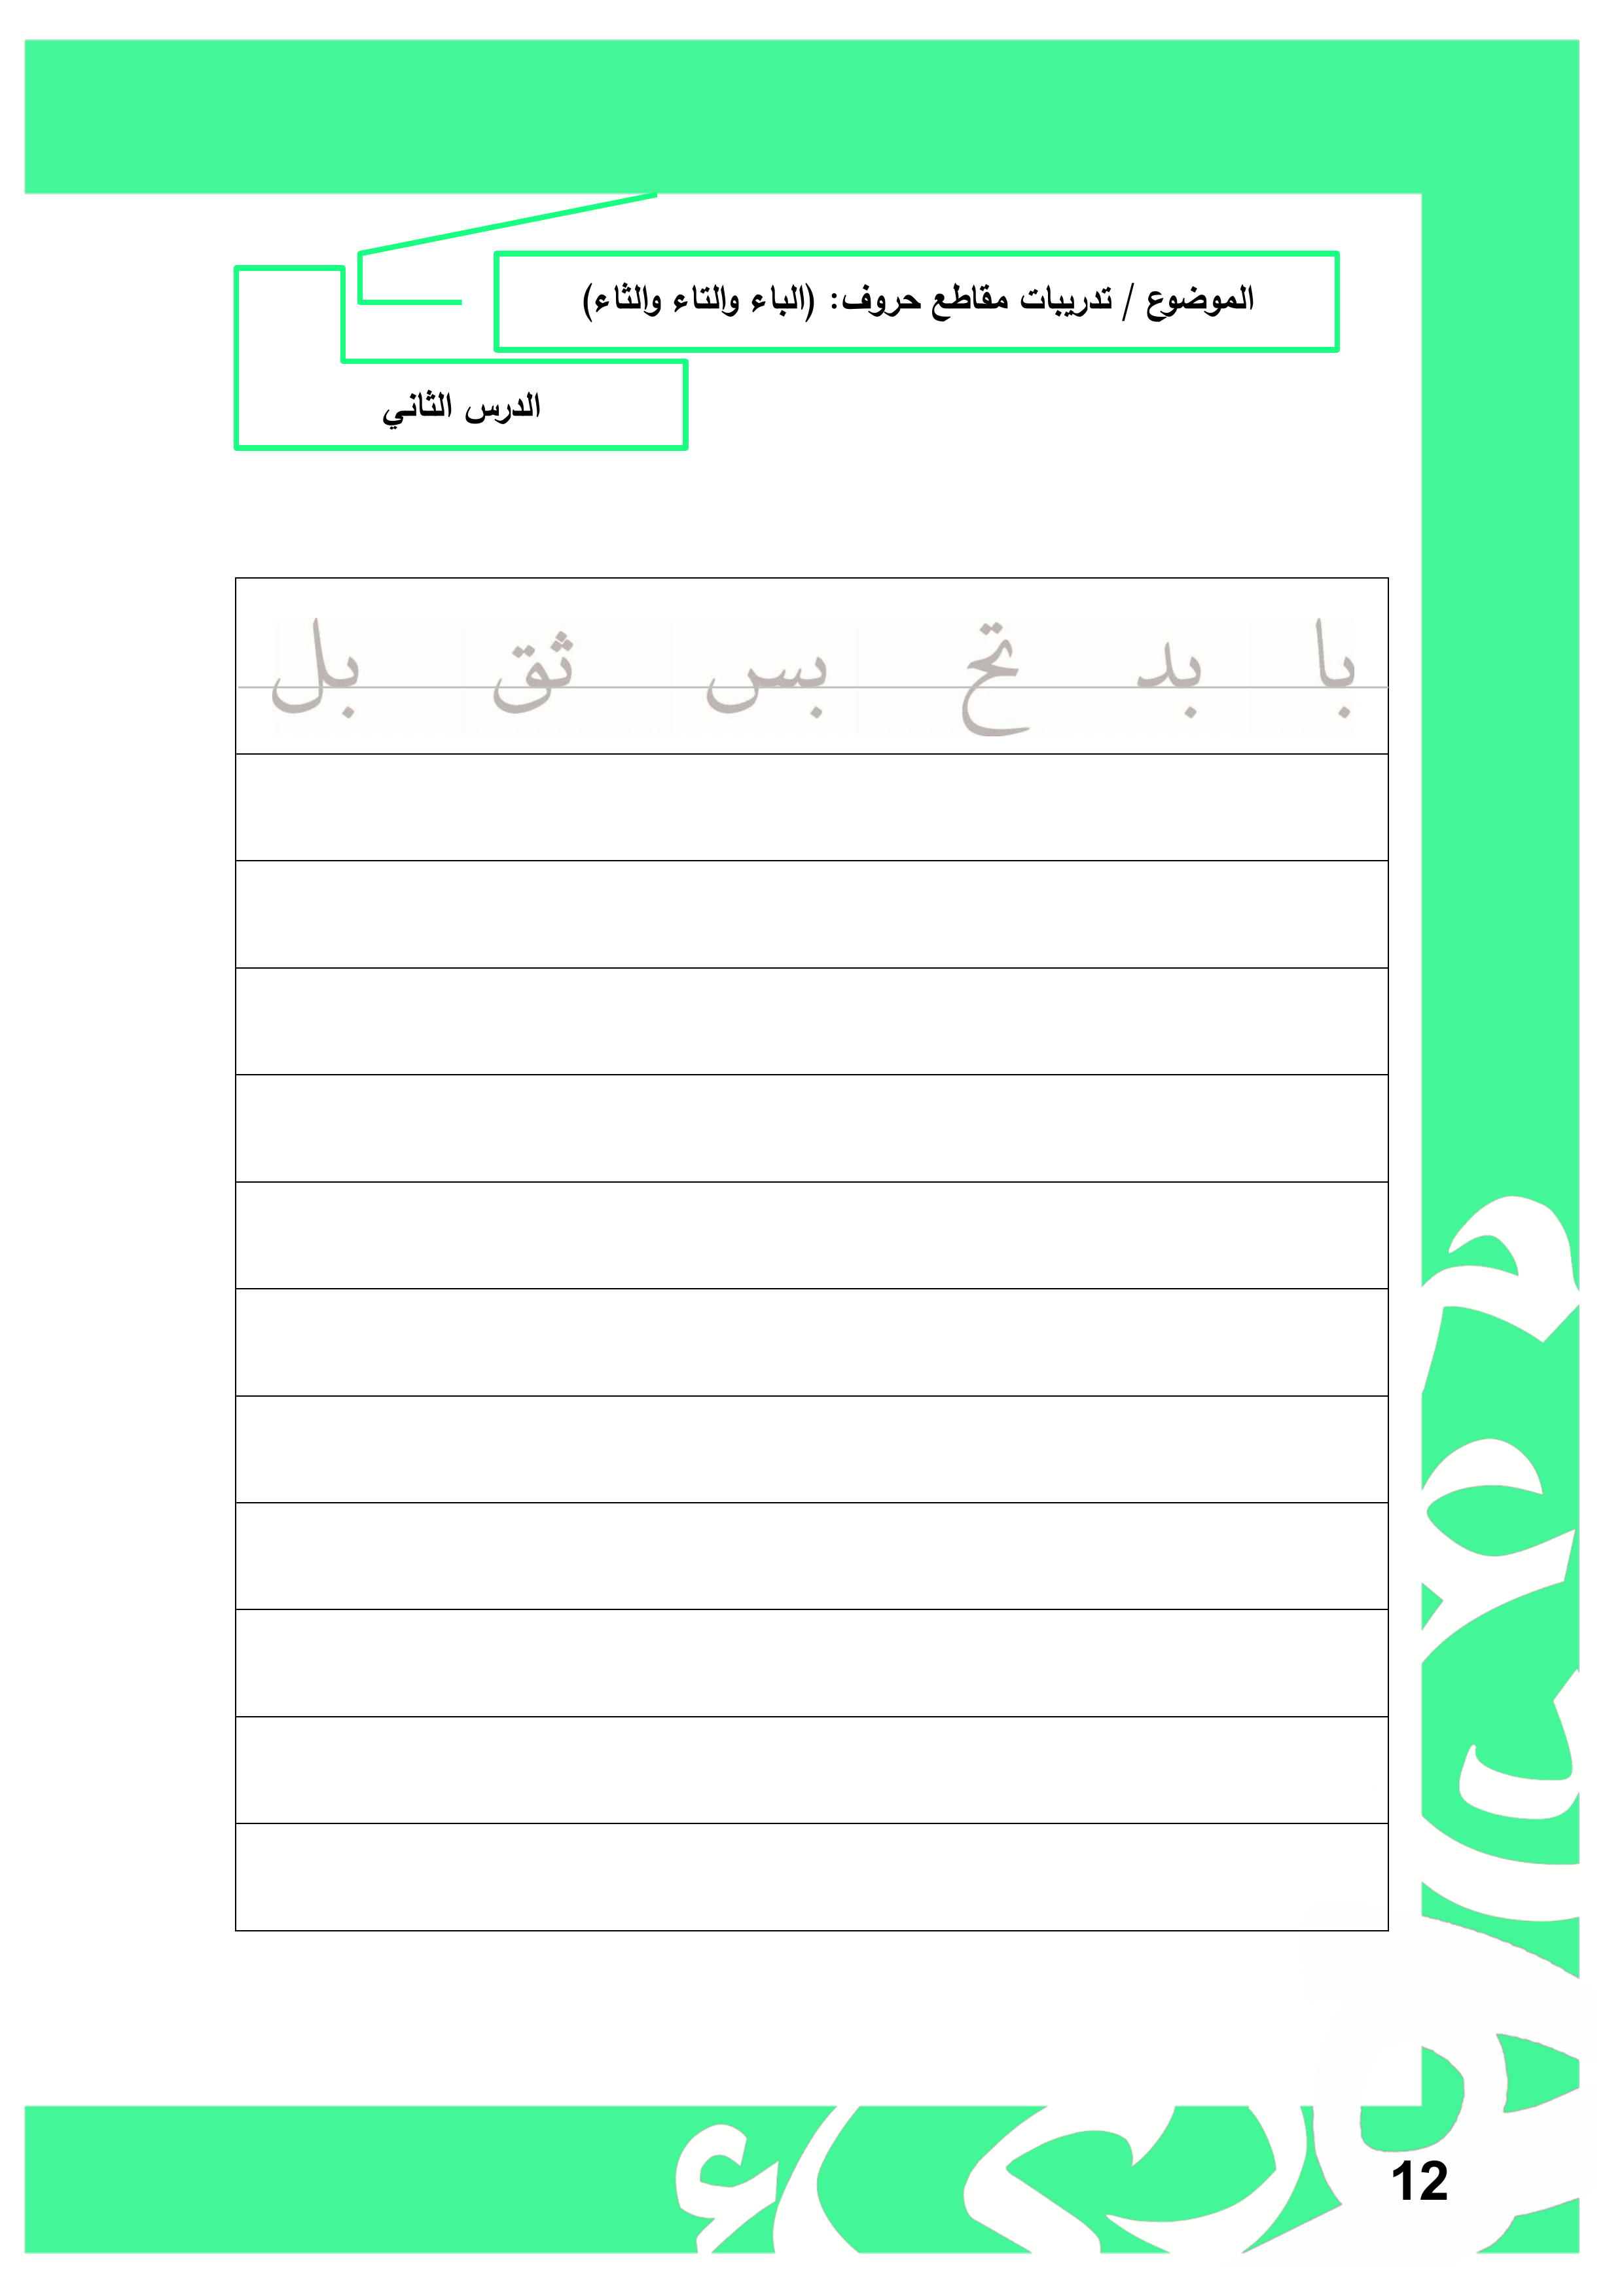 الموضوع / تدريبات مقاطع حروف: (الباء والتاء والثاء)
الدرس الثاني
با بد تح بس ثق بل
12